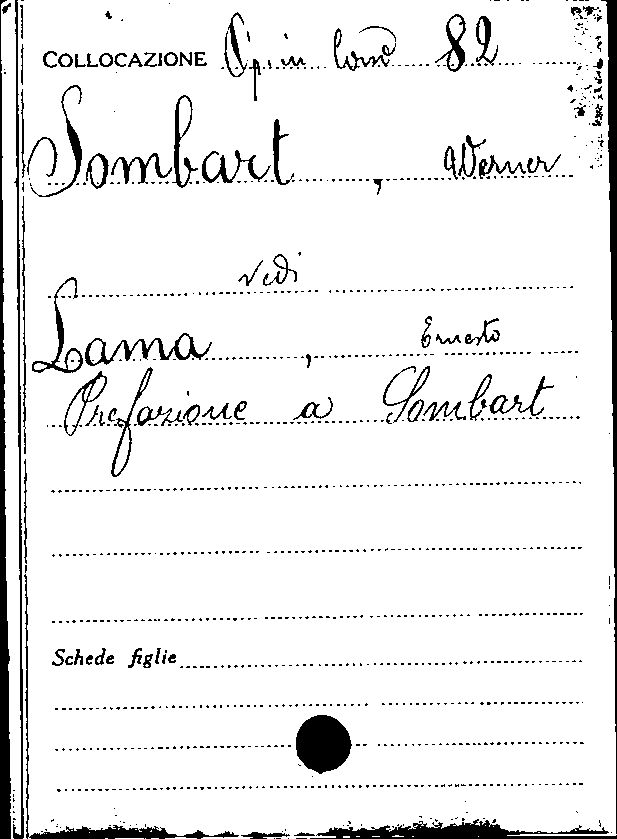 COLLOCAZIONE Op. in cons 82
Sombart, Werner
vedi
Lama, Ernesto
Prefazione a Sombart
Schede figlie